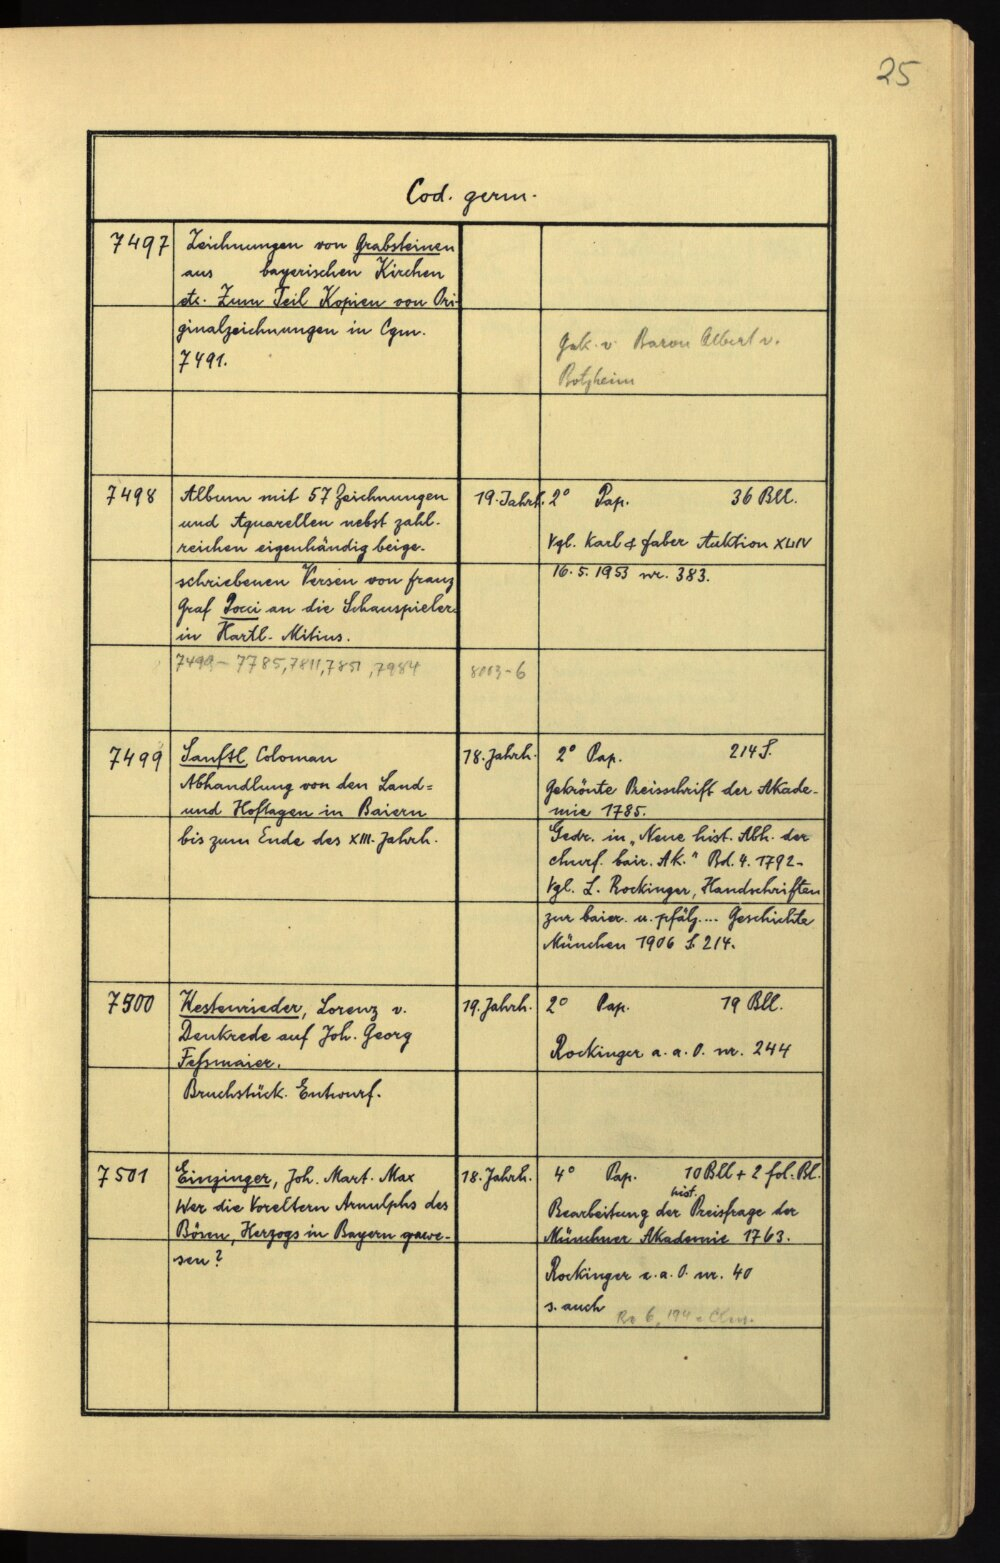 25
Cod. germ.
7497 Zeichnungen von Grabsteinen
aus bayerischen Kirchen
etc. Zum Teil Kopien von Ori-
ginalzeichnungen in Cgm.
7491.
Gek. v. Baron Albert v.
Botzheim
7498 Album mit 57 Zeichnungen 19. Jahrh. 2° Pap. 36 Bll.
und Aquarellen nebst zahl-
reichen eigenhändig beige- Vgl. Karl & Faber Auktion XLIV
schriebenen Versen von Franz 16.5.1953 nr. 383.
Graf Pocci an die Schauspieler-
in Hartl-Mitius.
7499- 7785, 7811, 7851, 7984 8003-6
7499 Sanftl Coloman 18. Jahrh. 2° Pap. 214 S.
Abhandlung von den Land= Gekrönte Preisschrift der Akade-
und Hoftagen in Baiern mie 1785.
bis zum Ende des XIII. Jahrh. Gedr. in „Neue hist. Abh. der
churf. bair. Ak." Bd. 4. 1792-
Vgl. L. Rockinger, Handschriften
zur baier. u. pfälz.... Geschichte
München 1906 S. 214.
7500 Westenrieder, Lorenz v. 19. Jahrh. 2° Pap. 19 Bll.
Denkrede auf Joh. Georg
Feßmaier. Rockinger a. a. O. nr. 244
Bruchstück. Entwurf.
7501 Einzinger, Joh. Mart. Max 18. Jahrh. 4° Pap. 10 Bll + 2 fol. Bl.
Wer die Voreltern Arnulphs des Bearbeitung der hist. Preisfrage der
Bösen, Herzogs in Bayern gewe- Münchner Akademie 1763.
sen? Rockinger a. a. O. nr. 40
s. auch